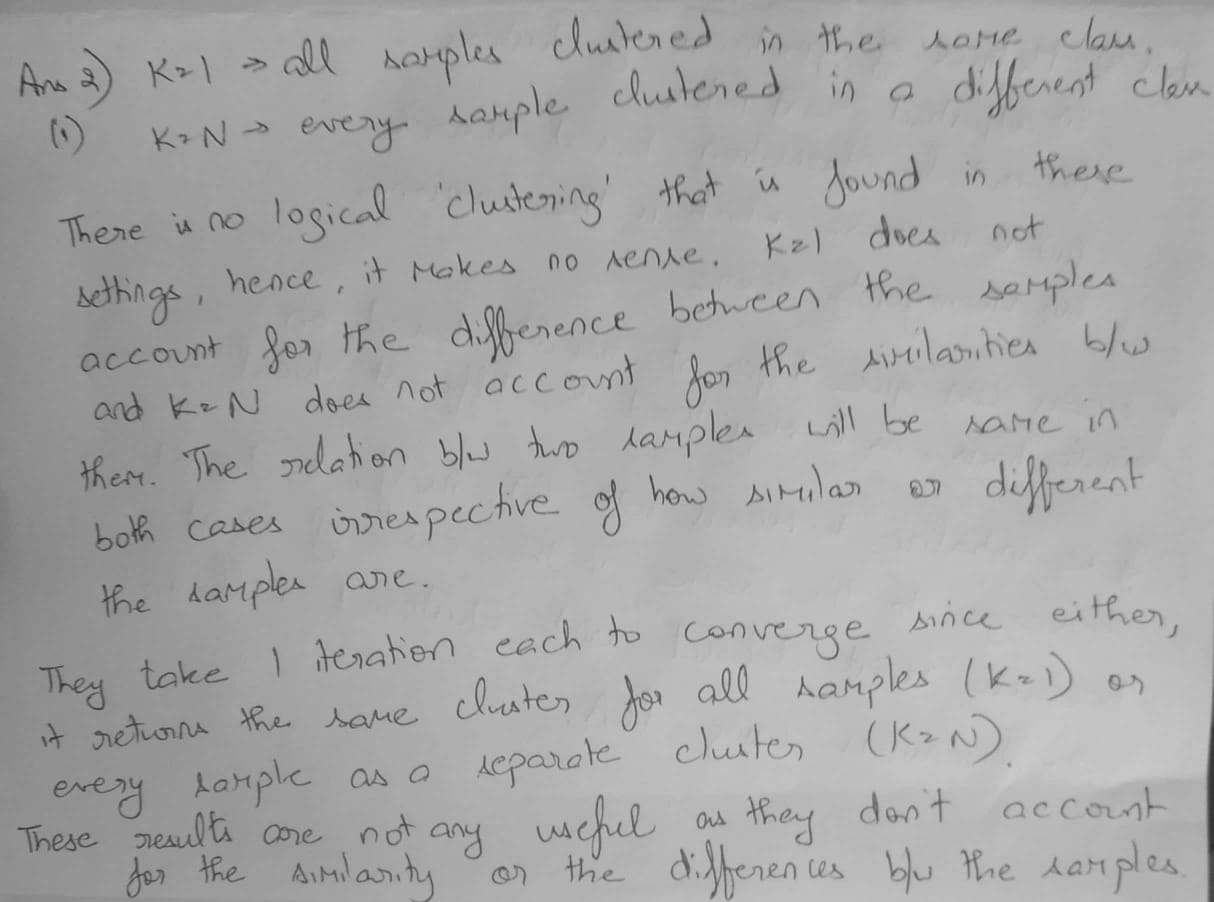 Ans 2) K=1 → all samples clustered in the same class.
(i) K=N → every sample clustered in a different class
There is no logical 'clustering' that is found in these
settings, hence, it makes no sense. K=1 does not
account for the difference between the samples
and K=N does not account for the similarities b/w
them. The relation b/w two samples will be same in
both cases irrespective of how similar or different
the samples are.
They take 1 iteration each to converge since either,
it returns the same cluster for all samples (K=1) or
every sample as a separate cluster (K=N).
These results are not any useful as they don't account
for the similarity or the differences b/w the samples.